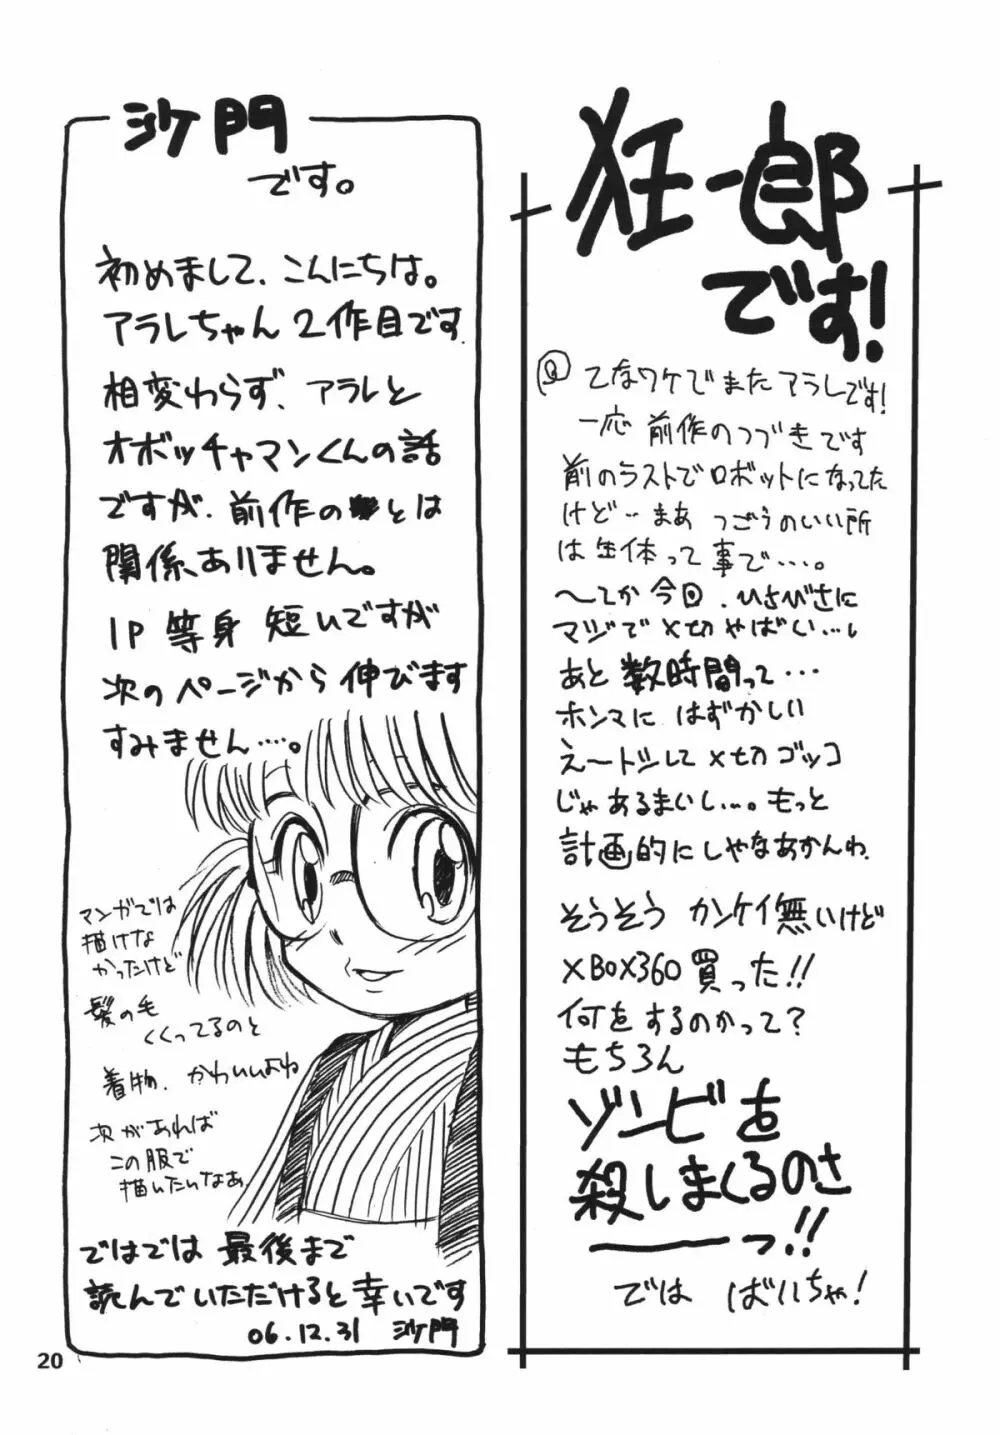 狂一郎
です!
てなワケでまたアラレです!
一応 前作のつづきです
前のラストでロボットになってた
けど‥まあ つごうのいい所
は生体って事で‥‥。
〜てか今回、ひさびさに
マジで〆切やばい‥‥
あと数時間って‥‥
ホンマに はずかしい
え〜トシして〆切ゴッコ
じゃあるまいし‥‥。もっと
計画的にしやなあかんわ
そうそう カンケイ無いけど
XBOX360買った!!
何をするのかって?
もちろん
ゾンビを
殺しまくるのさ
ーーっ!!
では ばいちゃ!
沙門
です。
初めまして、こんにちは。
アラレちゃん 2作目です
相変わらず、アラレと
オボッチャマンくんの話
ですが、前作の とは
関係ありません。
1P 等身 短いですが
次のページから伸びます
すみません‥‥。
マンガでは
描けな
かったけど
髪の毛
くくってるのと
着物、かわいいよね
次があれば
この服で
描いたいなあ
ではでは 最後まで
読んでいただけると幸いです
06.12.31 沙門
20